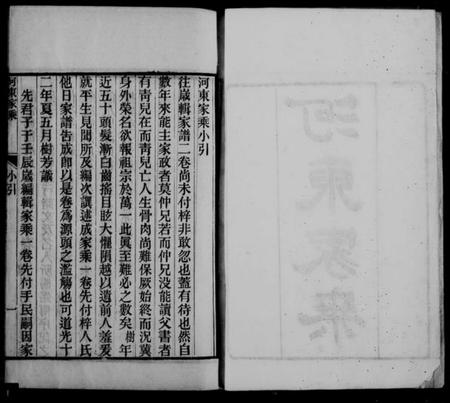 河東家乘
河東家乘小引
往歲輯家譜二卷尚未付梓非敢忽也蓋有待也然自
數年來能主家政者莫仲兄若而仲兄沒能讀父書者
有靑兒在而靑兒亡人生骨肉尚難保厥始終而況冀
身外榮名欲報祖宗於萬一此眞至難必之數矣樹年
近五十頭髮漸白齒搖目眩大懼隕越以遺前人羞爰
就平生見聞所及編次譔述成家乘一卷先付梓人氏
他日家譜告成卽以是卷爲源頭之濫觴也可道光十
二年夏五月樹芳識
先君子于壬辰歲編輯家乘一卷先付手民嗣因家
河東家乘
小引
一